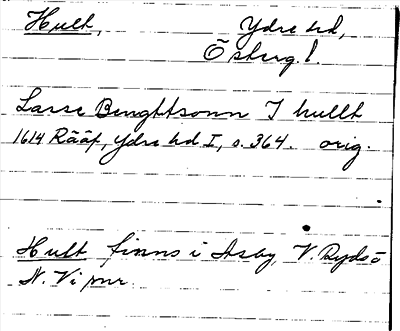 Hult, Ydre hd,
Österg. l.
Larse Benghtsonn I hullt
1614 Rääf, Ydre hd I, s. 364. orig.
Hult finns i Asby, V. Ryd o
N. Vi snr.